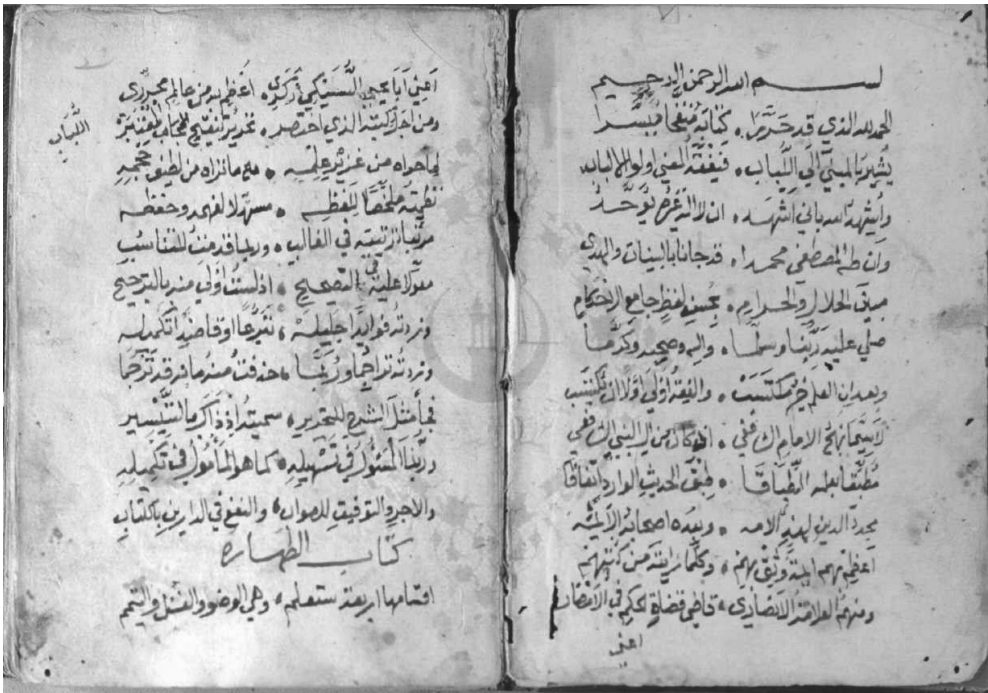 بسم الله الرحمن الرحيم
الحمد لله الذي قد حررا • كتابه منقحا ميسرا
يشير بالمبني الى اللباب • فيفقه المعنى اولو الالباب
وأشهد الله باني اشهد • ان لا اله غيره يوحد
وان طه المصطفى محمدا • قد جانا بالبينات والهدي
مبين الحلال والحرام • بحسن لفظ جامع الاحكام
صلي عليه ربنا وسلما • واله وصحبه وكرما
وبعد ان العلم خير مكتسب • والفقه اولي اولا ان يكتسب
لا سيما نهج الامام الشافعي • اذ كان من ال النبي الشافعي
مطبقا بعلمه الطباقا • طبق الحديث الوارد اتفاقا
مجدد الدين لهذه الامه • وبعده اصحابه الايمة
اعظم بهم ايمة وثق بهم • وكلما رايته من كتبهم
ومنهم العلامة الانصاري • قاضي قضاة الحكم في الامصار
اعني
اعني ابا يحيى السنيكي زكري • اعظم به من عالم محرر
ومن اجل كتبه الذي اختصر • تحرير تنقيح اللباب
اللباب
لما حواه من غزير علمه • مع ما تراه من لطيف حجمه
نظمته ملخصا للفظه • مسهلا لفهمه وحفظه
مرتبا ترتيبه في الغالب • وربما قدمت للتناسب
معولا عليه في التصحيح • اذ لست اولي منه بالترجيح
وزدته فوايدا جليله • تفرعا او قاصدا تكمله
وزدته تراجما وربما • حذفت منه ما فرقه ترجما
فجا مثل الشرح للتحرير • سميته اذ ذاك بالتيسير
وربنا المسئول في تسهيله • كما هو المأمول في تكميله
والاجر والتوفيق للصواب • والنفع في الدارين بالكتاب
كتاب الطهاره
اقسامها اربعة ستعلم • وهي الوضو والغسل والتيمم